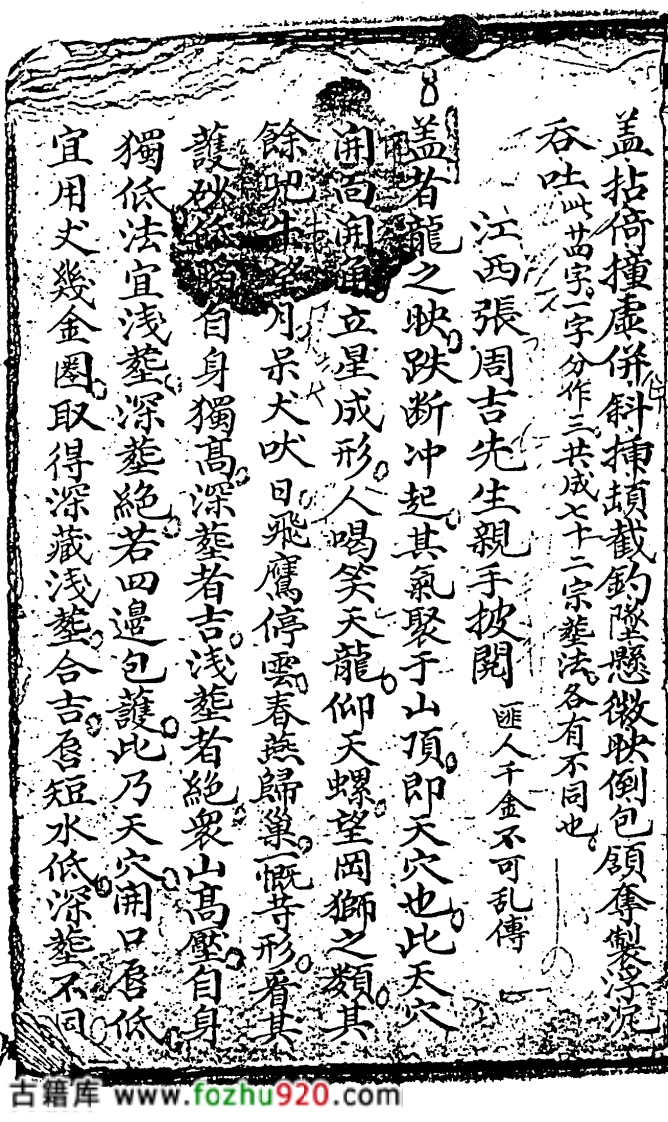 盖拈倚撞虚併斜揷頡截釣墜懸微映倒包頷奪製浮沉
呑吐此廿四字一字分作三共成七十二宗塟法各有不同也
江西張周吉先生親手披閱 匪人千金不可乱傳
盖者龍之映跌断冲起其氣聚于山頂即天穴也此天穴
開面開角立星成形人喝笑天龍仰天螺望岡獅之類其
餘咒牛望月呆犬吠日飛鷹停雲春燕歸巢一慨䒭形看其
護砂自身獨髙深塟者吉浅塟者絶衆山髙壓自身
獨低法宜浅塟深塟絶若四邉包護此乃天穴開口唇低
宜用犬幾金圏取得深藏浅塟合吉唇短水低深塟不同
古籍库 www.fozhu920.com